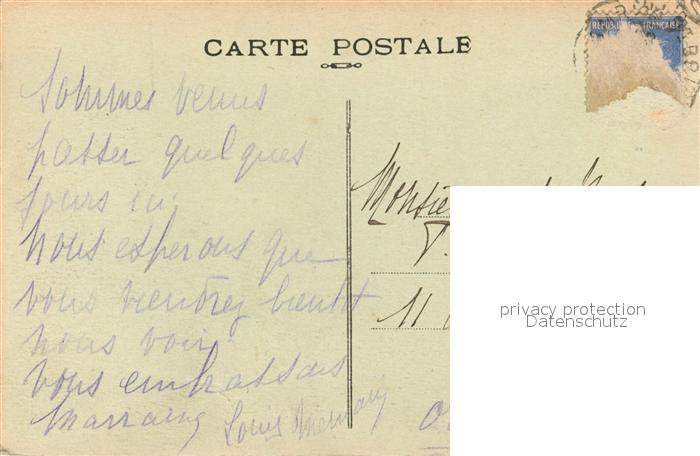 RÉPUBLIQUE FRANÇAISE
CARTE POSTALE
Sommes venus
passer quelques
jours ici.
Nous esperons que
vous viendrez bientot
nous voir.
Vous embrassons
Marraine Louis
Monsie
11
privacy protection
Datenschutz